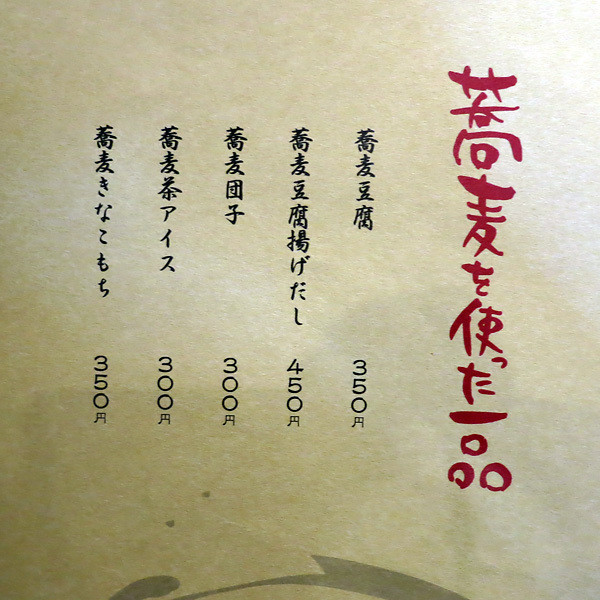 蕎麦を使った一品
蕎麦豆腐 350円
蕎麦豆腐揚げだし 450円
蕎麦団子 300円
蕎麦茶アイス 300円
蕎麦きなこもち 350円